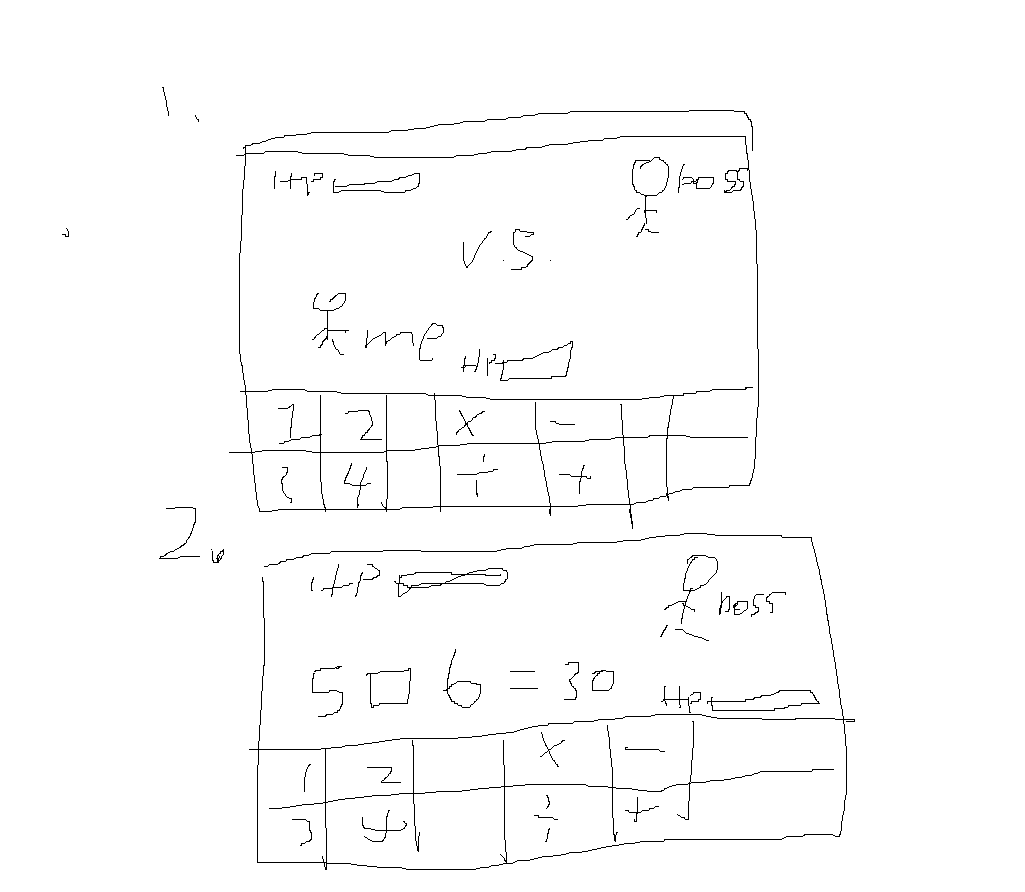 1.
HP boss
V.S.
me HP
1 2 × -
3 4 ÷ +
2.
HP boss
5 □ 6 = 30
HP
1 2 × -
3 4 ÷ +